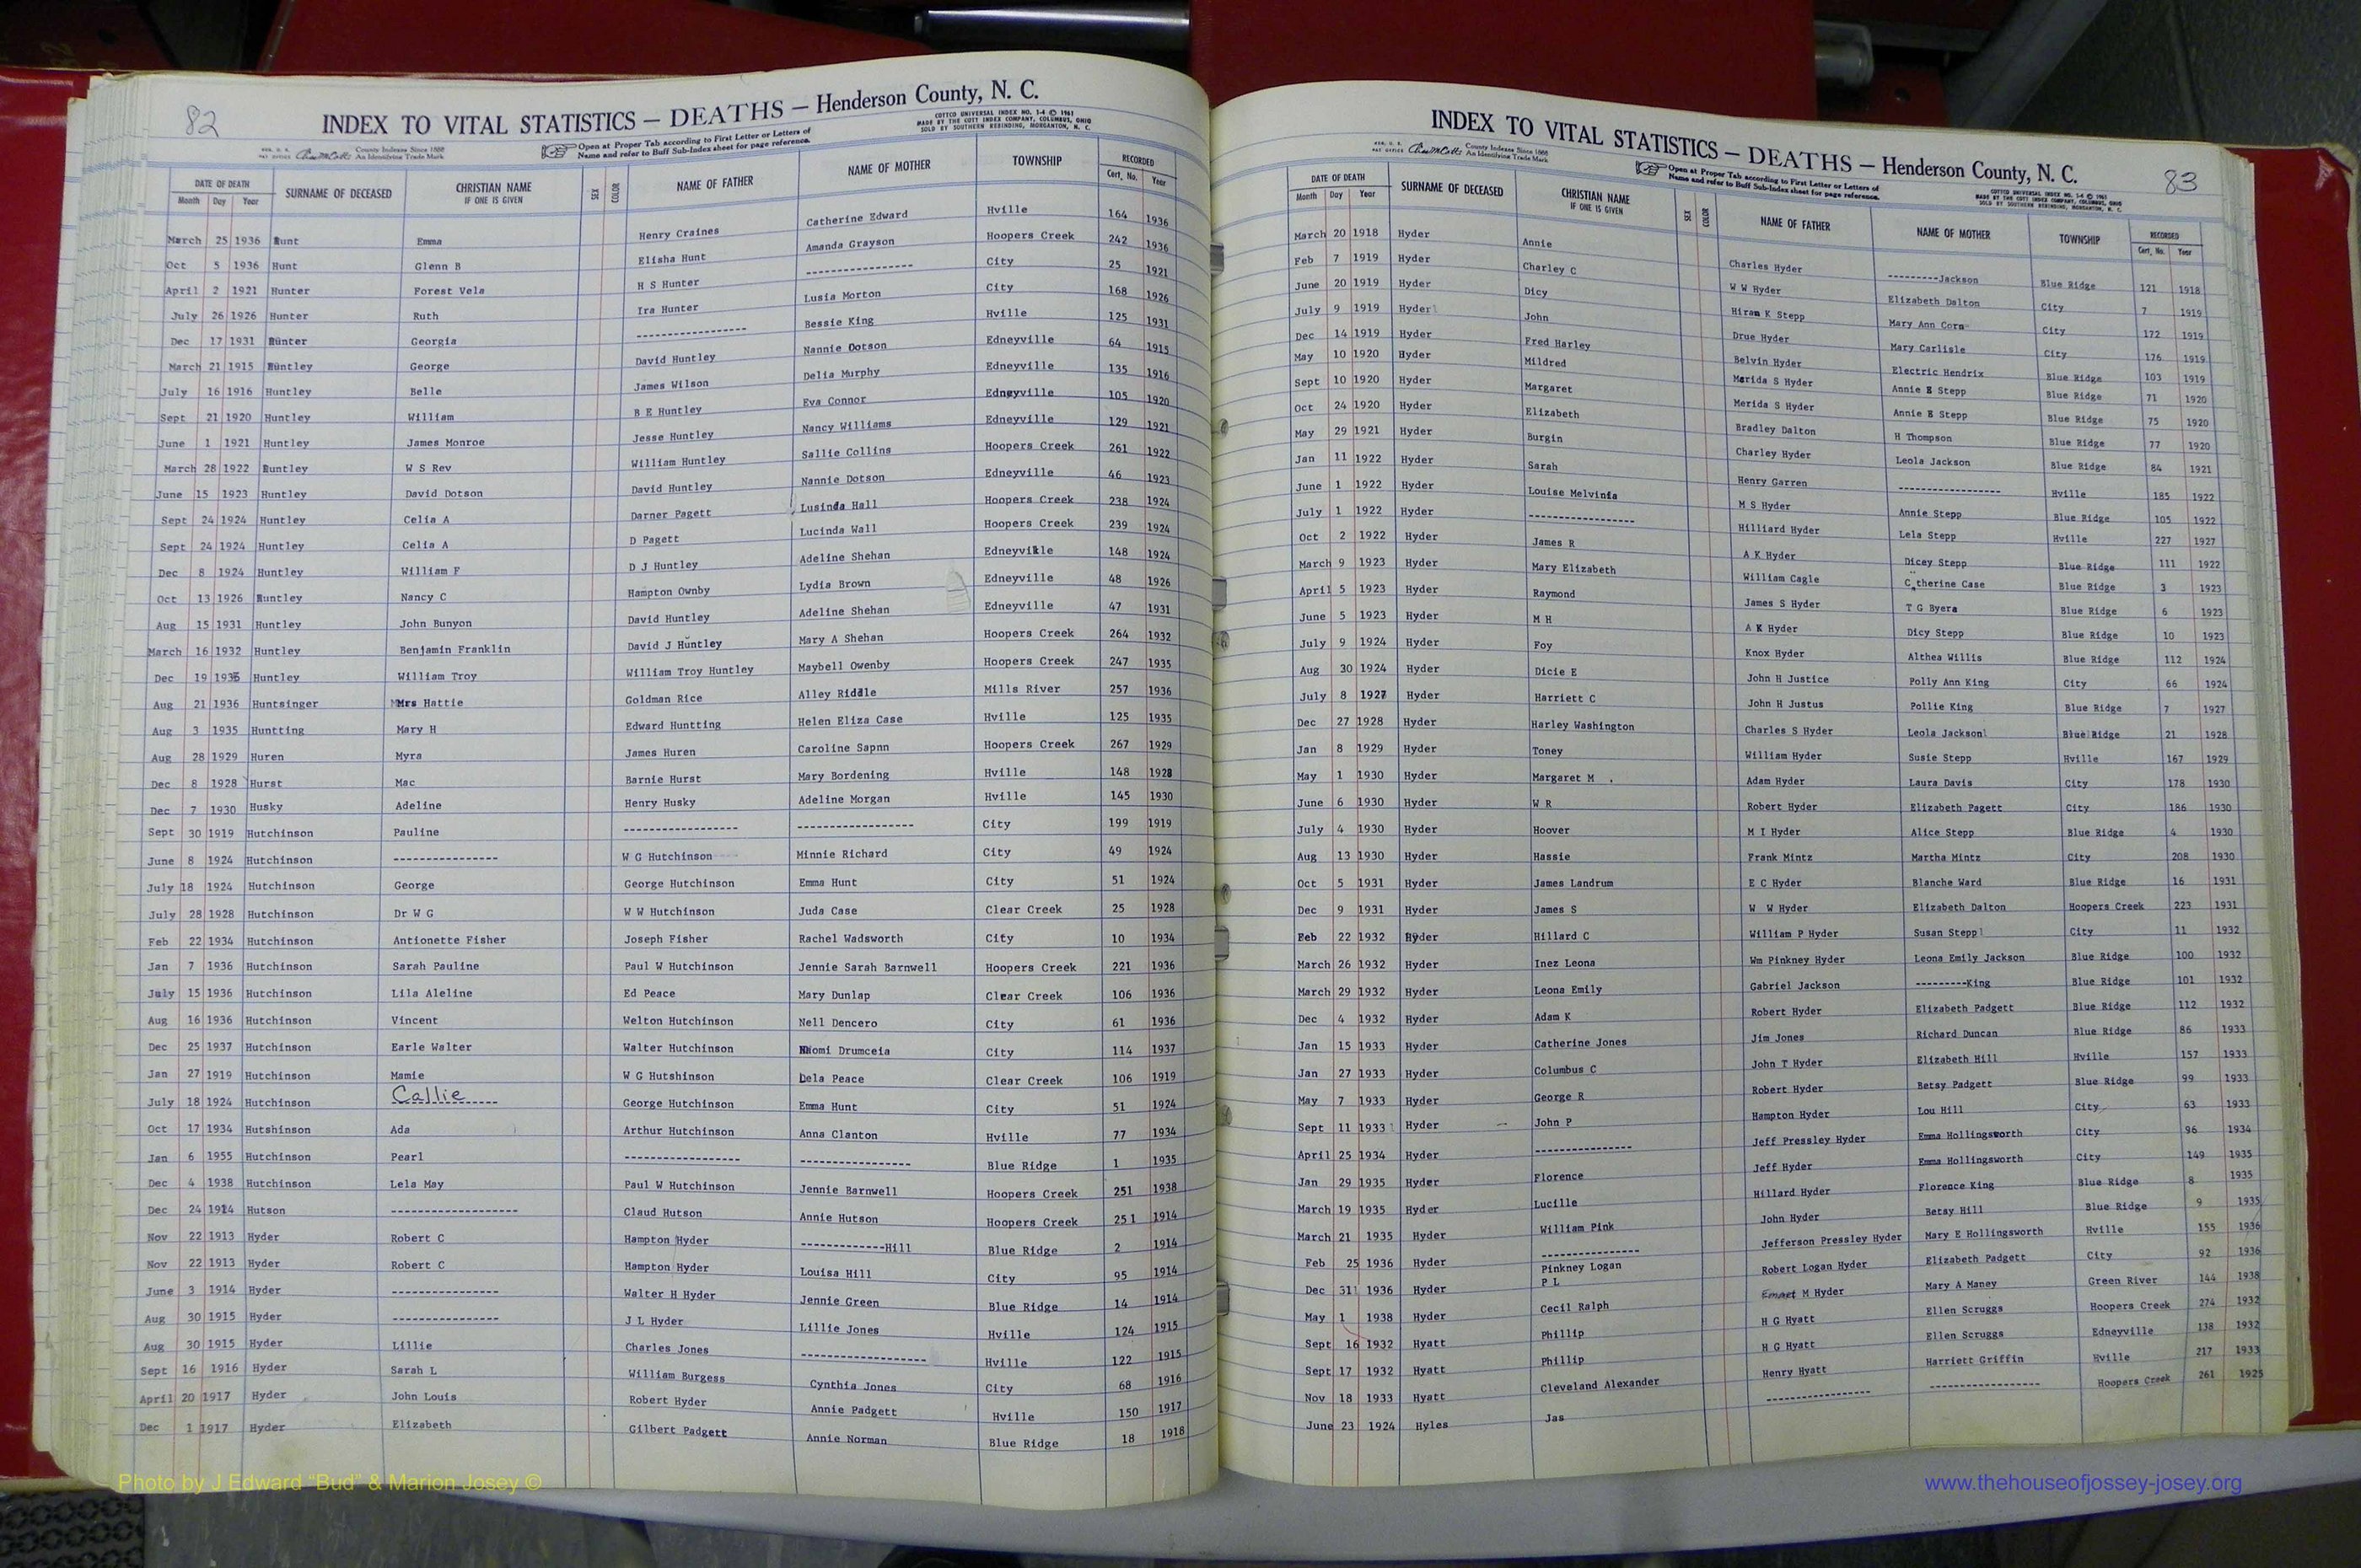 82
INDEX TO VITAL STATISTICS — DEATHS — Henderson County, N. C.
COTTCO UNIVERSAL INDEX NO. 1-4 © 1961
MADE BY THE COTT INDEX COMPANY, COLUMBUS, OHIO
SOLD BY SOUTHERN REBINDING, MORGANTON, N. C.
County Indexes Since 1888
An Identifying Trade Mark
Open at Proper Tab according to First Letter or Letters of
Name and refer to Buff Sub-Index sheet for page reference.
DATE OF DEATH SURNAME OF DECEASED CHRISTIAN NAME IF ONE IS GIVEN SEX COLOR NAME OF FATHER NAME OF MOTHER TOWNSHIP RECORDED
Month Day Year Cert. No. Year
March 25 1936 Hunt Emma Henry Craines Catherine Edward Hville 164 1936
Oct 5 1936 Hunt Glenn B Elisha Hunt Amanda Grayson Hoopers Creek 242 1936
April 2 1921 Hunter Forest Vela H S Hunter ---------------- City 25 1921
July 26 1926 Hunter Ruth Ira Hunter Lusia Morton City 168 1926
Dec 17 1931 Hunter Georgia ---------------- Bessie King Hville 125 1931
March 21 1915 Huntley George David Huntley Nannie Dotson Edneyville 64 1915
July 16 1916 Huntley Belle James Wilson Delia Murphy Edneyville 135 1916
Sept 21 1920 Huntley William B E Huntley Eva Connor Edneyville 105 1920
June 1 1921 Huntley James Monroe Jesse Huntley Nancy Williams Edneyville 129 1921
March 28 1922 Huntley W S Rev William Huntley Sallie Collins Hoopers Creek 261 1922
June 15 1923 Huntley David Dotson David Huntley Nannie Dotson Edneyville 46 1923
Sept 24 1924 Huntley Celia A Darner Pagett Lusinda Hall Hoopers Creek 238 1924
Sept 24 1924 Huntley Celia A D Pagett Lucinda Wall Hoopers Creek 239 1924
Dec 8 1924 Huntley William F D J Huntley Adeline Shehan Edneyville 148 1924
Oct 13 1926 Huntley Nancy C Hampton Ownby Lydia Brown Edneyville 48 1926
Aug 15 1931 Huntley John Bunyon David Huntley Adeline Shehan Edneyville 47 1931
March 16 1932 Huntley Benjamin Franklin David J Huntley Mary A Shehan Hoopers Creek 264 1932
Dec 19 Huntley William Troy William Troy Huntley Maybell Owenby Hoopers Creek 247 1935
Aug 21 1936 Huntsinger Mrs Hattie Goldman Rice Alley Riddle Mills River 257 1936
Aug 3 1935 Huntting Mary H Edward Huntting Helen Eliza Case Hville 125 1935
Aug 28 1929 Huren Myra James Huren Caroline Sapnn Hoopers Creek 267 1929
Dec 8 1928 Hurst Mac Barnie Hurst Mary Bordening Hville 148 1928
Dec 7 1930 Husky Adeline Henry Husky Adeline Morgan Hville 145 1930
Sept 30 1919 Hutchinson Pauline ---------------- ---------------- City 199 1919
June 8 1924 Hutchinson ---------------- W G Hutchinson Minnie Richard City 49 1924
July 18 1924 Hutchinson George George Hutchinson Emma Hunt City 51 1924
July 28 1928 Hutchinson Dr W G W W Hutchinson Juda Case Clear Creek 25 1928
Feb 22 1934 Hutchinson Antionette Fisher Joseph Fisher Rachel Wadsworth City 10 1934
Jan 7 1936 Hutchinson Sarah Pauline Paul W Hutchinson Jennie Sarah Barnwell Hoopers Creek 221 1936
July 15 1936 Hutchinson Lila Aleline Ed Peace Mary Dunlap Clear Creek 106 1936
Aug 16 1936 Hutchinson Vincent Welton Hutchinson Nell Dencero City 61 1936
Dec 25 1937 Hutchinson Earle Walter Walter Hutchinson Naomi Drumceia City 114 1937
Jan 27 1919 Hutchinson Mamie W G Hutshinson Lela Peace Clear Creek 106 1919
July 18 1924 Hutchinson Callie George Hutchinson Emma Hunt City 51 1924
Oct 17 1934 Hutshinson Ada Arthur Hutchinson Anna Clanton Hville 77 1934
Jan 6 1955 Hutchinson Pearl ---------------- ---------------- Blue Ridge 1 1935
Dec 4 1938 Hutchinson Lela May Paul W Hutchinson Jennie Barnwell Hoopers Creek 251 1938
Dec 24 1914 Hutson ------------------ Claud Hutson Annie Hutson Hoopers Creek 251 1914
Nov 22 1913 Hyder Robert C Hampton Hyder ------------Hill Blue Ridge 2 1914
Nov 22 1913 Hyder Robert C Hampton Hyder Louisa Hill City 95 1914
June 3 1914 Hyder ---------------- Walter H Hyder Jennie Green Blue Ridge 14 1914
Aug 30 1915 Hyder ---------------- J L Hyder Lillie Jones Hville 124 1915
Aug 30 1915 Hyder Lillie Charles Jones ------------------ Hville 122 1915
Sept 16 1916 Hyder Sarah L William Burgess Cynthia Jones City 68 1916
April 20 1917 Hyder John Louis Robert Hyder Annie Padgett Hville 150 1917
Dec 1 1917 Hyder Elizabeth Gilbert Padgett Annie Norman Blue Ridge 18 1918
Photo by J Edward “Bud” & Marion Josey ©
INDEX TO VITAL STATISTICS — DEATHS — Henderson County, N. C.
83
County Indexes Since 1888
An Identifying Trade Mark
Open at Proper Tab according to First Letter or Letters of
Name and refer to Buff Sub-Index sheet for page reference.
COTTCO UNIVERSAL INDEX NO. 1-4 © 1961
MADE BY THE COTT INDEX COMPANY, COLUMBUS, OHIO
SOLD BY SOUTHERN REBINDING, MORGANTON, N. C.
DATE OF DEATH SURNAME OF DECEASED CHRISTIAN NAME IF ONE IS GIVEN SEX COLOR NAME OF FATHER NAME OF MOTHER TOWNSHIP RECORDED
Month Day Year Cert. No. Year
March 20 1918 Hyder Annie Charles Hyder ---------Jackson Blue Ridge 121 1918
Feb 7 1919 Hyder Charley C W W Hyder Elizabeth Dalton City 7 1919
June 20 1919 Hyder Dicy Hiram K Stepp Mary Ann Corn City 172 1919
July 9 1919 Hyder John Drue Hyder Mary Carlisle City 176 1919
Dec 14 1919 Hyder Fred Harley Belvin Hyder Electric Hendrix Blue Ridge 103 1919
May 10 1920 Hyder Mildred Merida S Hyder Annie E Stepp Blue Ridge 71 1920
Sept 10 1920 Hyder Margaret Merida S Hyder Annie E Stepp Blue Ridge 75 1920
Oct 24 1920 Hyder Elizabeth Bradley Dalton H Thompson Blue Ridge 77 1920
May 29 1921 Hyder Burgin Charley Hyder Leola Jackson Blue Ridge 84 1921
Jan 11 1922 Hyder Sarah Henry Garren ---------------- Hville 185 1922
June 1 1922 Hyder Louise Melvinia M S Hyder Annie Stepp Blue Ridge 105 1922
July 1 1922 Hyder ---------------- Hilliard Hyder Lela Stepp Hville 227 1927
Oct 2 1922 Hyder James R A K Hyder Dicey Stepp Blue Ridge 111 1922
March 9 1923 Hyder Mary Elizabeth William Cagle Catherine Case Blue Ridge 3 1923
April 5 1923 Hyder Raymond James S Hyder T G Byers Blue Ridge 6 1923
June 5 1923 Hyder M H A K Hyder Dicy Stepp Blue Ridge 10 1923
July 9 1924 Hyder Foy Knox Hyder Althea Willis Blue Ridge 112 1924
Aug 30 1924 Hyder Dicie E John H Justice Polly Ann King City 66 1924
July 8 1927 Hyder Harriett C John H Justus Pollie King Blue Ridge 7 1927
Dec 27 1928 Hyder Harley Washington Charles S Hyder Leola Jackson Blue Ridge 21 1928
Jan 8 1929 Hyder Toney William Hyder Susie Stepp Hville 167 1929
May 1 1930 Hyder Margaret M . Adam Hyder Laura Davis City 178 1930
June 6 1930 Hyder W R Robert Hyder Elizabeth Pagett City 186 1930
July 4 1930 Hyder Hoover M I Hyder Alice Stepp Blue Ridge 4 1930
Aug 13 1930 Hyder Hassie Frank Mintz Martha Mintz City 208 1930
Oct 5 1931 Hyder James Landrum E C Hyder Blanche Ward Blue Ridge 16 1931
Dec 9 1931 Hyder James S W W Hyder Elizabeth Dalton Hoopers Creek 223 1931
Feb 22 1932 Hyder Hillard C William P Hyder Susan Stepp City 11 1932
March 26 1932 Hyder Inez Leona Wm Pinkney Hyder Leona Emily Jackson Blue Ridge 100 1932
March 29 1932 Hyder Leona Emily Gabriel Jackson ---------King Blue Ridge 101 1932
Dec 4 1932 Hyder Adam K Robert Hyder Elizabeth Padgett Blue Ridge 112 1932
Jan 15 1933 Hyder Catherine Jones Jim Jones Richard Duncan Blue Ridge 86 1933
Jan 27 1933 Hyder Columbus C John T Hyder Elizabeth Hill Hville 157 1933
May 7 1933 Hyder George R Robert Hyder Betsy Padgett Blue Ridge 99 1933
Sept 11 1933 Hyder John P Hampton Hyder Lou Hill City 63 1933
April 25 1934 Hyder --------------- Jeff Pressley Hyder Emma Hollingsworth City 96 1934
Jan 29 1935 Hyder Florence Jeff Hyder Emma Hollingsworth City 149 1935
March 19 1935 Hyder Lucille Hillard Hyder Florence King Blue Ridge 8 1935
March 21 1935 Hyder William Pink John Hyder Betsy Hill Blue Ridge 9 1935
Feb 25 1936 Hyder --------------- Jefferson Pressley Hyder Mary E Hollingsworth Hville 155 1936
Dec 31 1936 Hyder Pinkney Logan P L Robert Logan Hyder Elizabeth Padgett City 92 1936
May 1 1938 Hyder Cecil Ralph M Hyder Mary A Maney Green River 144 1938
Sept 16 1932 Hyatt Phillip H G Hyatt Ellen Scruggs Hoopers Creek 274 1932
Sept 17 1932 Hyatt Phillip H G Hyatt Ellen Scruggs Edneyville 138 1932
Nov 18 1933 Hyatt Cleveland Alexander Henry Hyatt Harriett Griffin Hville 217 1933
June 23 1924 Hyles Jas ---------------- ---------------- Hoopers Creek 261 1925
www.thehouseofjossey-josey.org